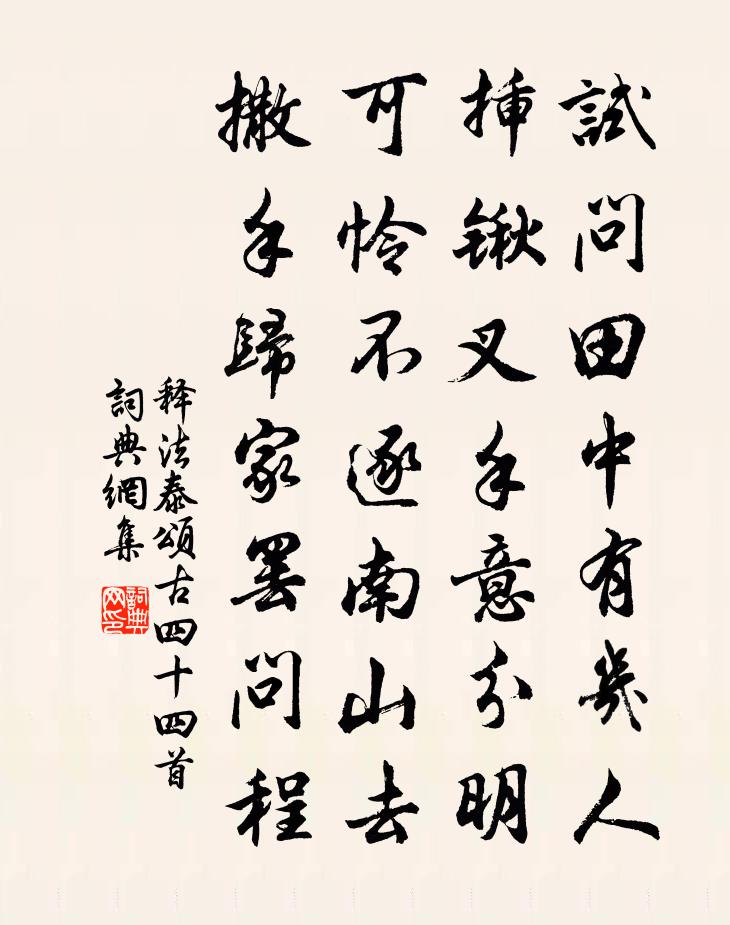 試問田中有幾人
挿锹叉手意分明
可怜不逐南山去
撒手歸家罢問程
释法泰頌古四十四首
詞典網集
詞典網印